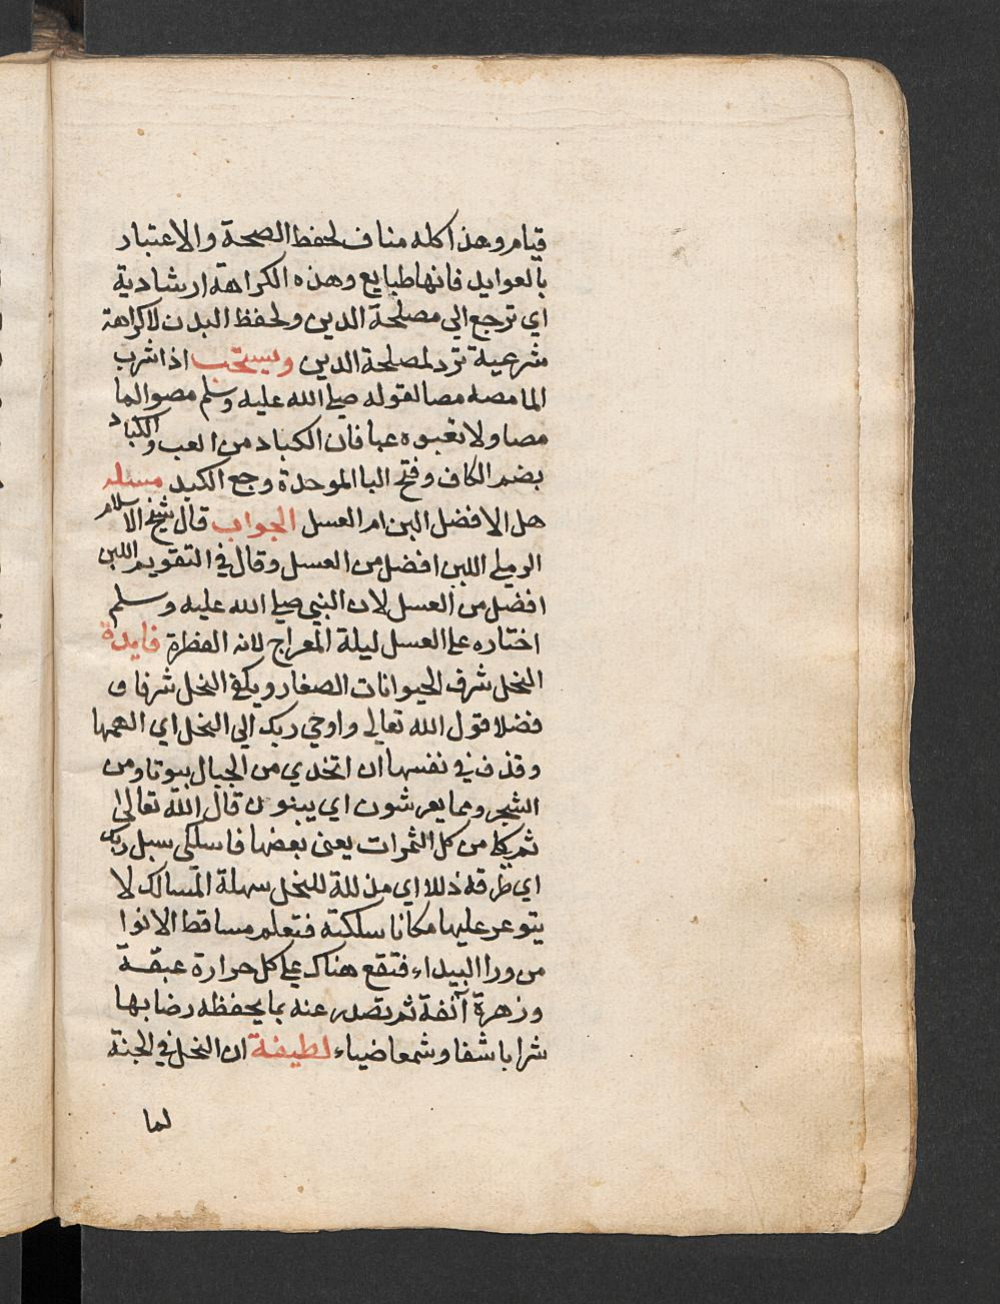 قيام وهذا كله مناف لحفظ الصحة والاعتبار
بالعوايد فانها طبايع وهذه الكراهة ارشادية
اي ترجع الي مصلحة الدين ولحفظ البدن لا كراهة
شرعية ترد لمصلحة الدين ويستحب اذا شرب
الما مصه مصا لقوله صلي الله عليه وسلم مصوا الما
مصا ولا تعبوه عبا فان الكباد من العب والكباد
بضم الكاف وفتح البا الموحدة وجع الكبد مسئله
هل الافضل اللبن ام العسل الجواب قال شيخ الاسلام
الرملي اللبن افضل من العسل وقال في التقويم اللبن
افضل من العسل لان النبي صلي الله عليه وسلم
اختاره علي العسل ليلة المعراج لانه الفطرة فايدة
النحل شرف الحيوانات الصغار ويكفي النحل شرفا و
فضلا قول الله تعالي واوحي ربك الي النحل اي الهمها
وقذف في نفسها ان اتخذي من الجبال بيوتا ومن
الشجر ومما يعرشون اي يبنون قال الله تعالي
ثم كلي من كل الثمرات يعني بعضها فاسلكي سبل ربك
اي طرقه ذللا اي مذللة للنحل سهلة المسالك لا
يتوعر عليها مكانا سلكته فتعلم مساقط الانوا
من ورا البيداء فتقع هناك علي كل حرارة عبقة
وزهرة آنفة ثم تصدر عنه بما يحفظه رضا بها
شرابا شفا وشمعا ضياء لطيفة ان النحل في الجنة
لما